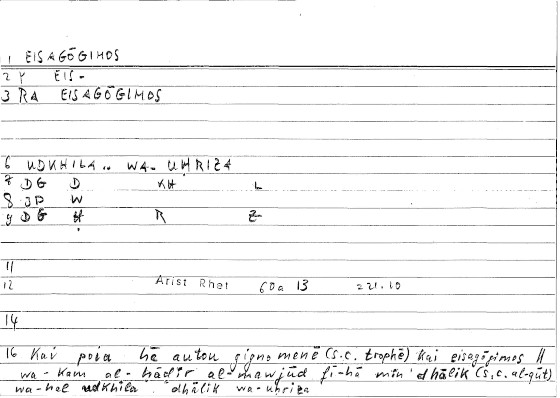 1 EISAGŌGIMOS
2 Y EIS-
3 RA EISAGŌGIMOS
6 UDKHILA.. WA- UḤRIZA
7 DG D KH L
8 JD W
9 DG Ḥ R Z
11
12 Arist Rhet 60a 13 221.10
14
16 Kai poia hē autou gignomenē (s.c. trophē) kai eisagōgimos //
wa-kam al-ḥāḍir al-mawjūd fī-hā min dhālik (s.c. al-qūt)
wa-hal udkhila dhālik wa-uḥriza